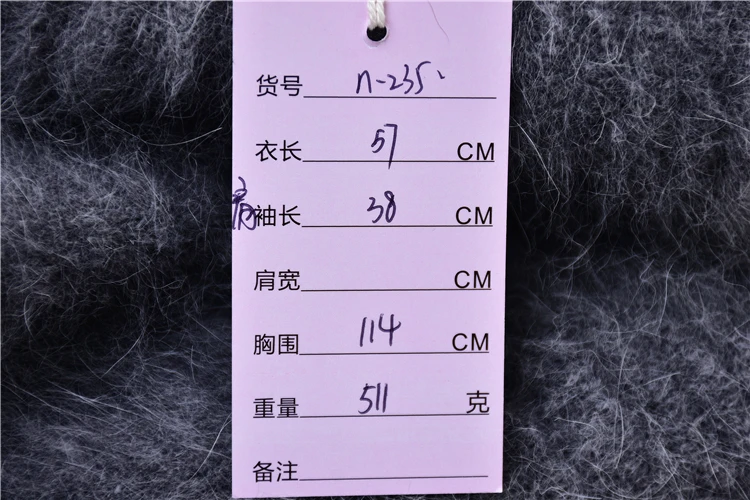 货号 n-235
衣长 57 CM
肩袖长 38 CM
肩宽 CM
胸围 114 CM
重量 511 克
备注